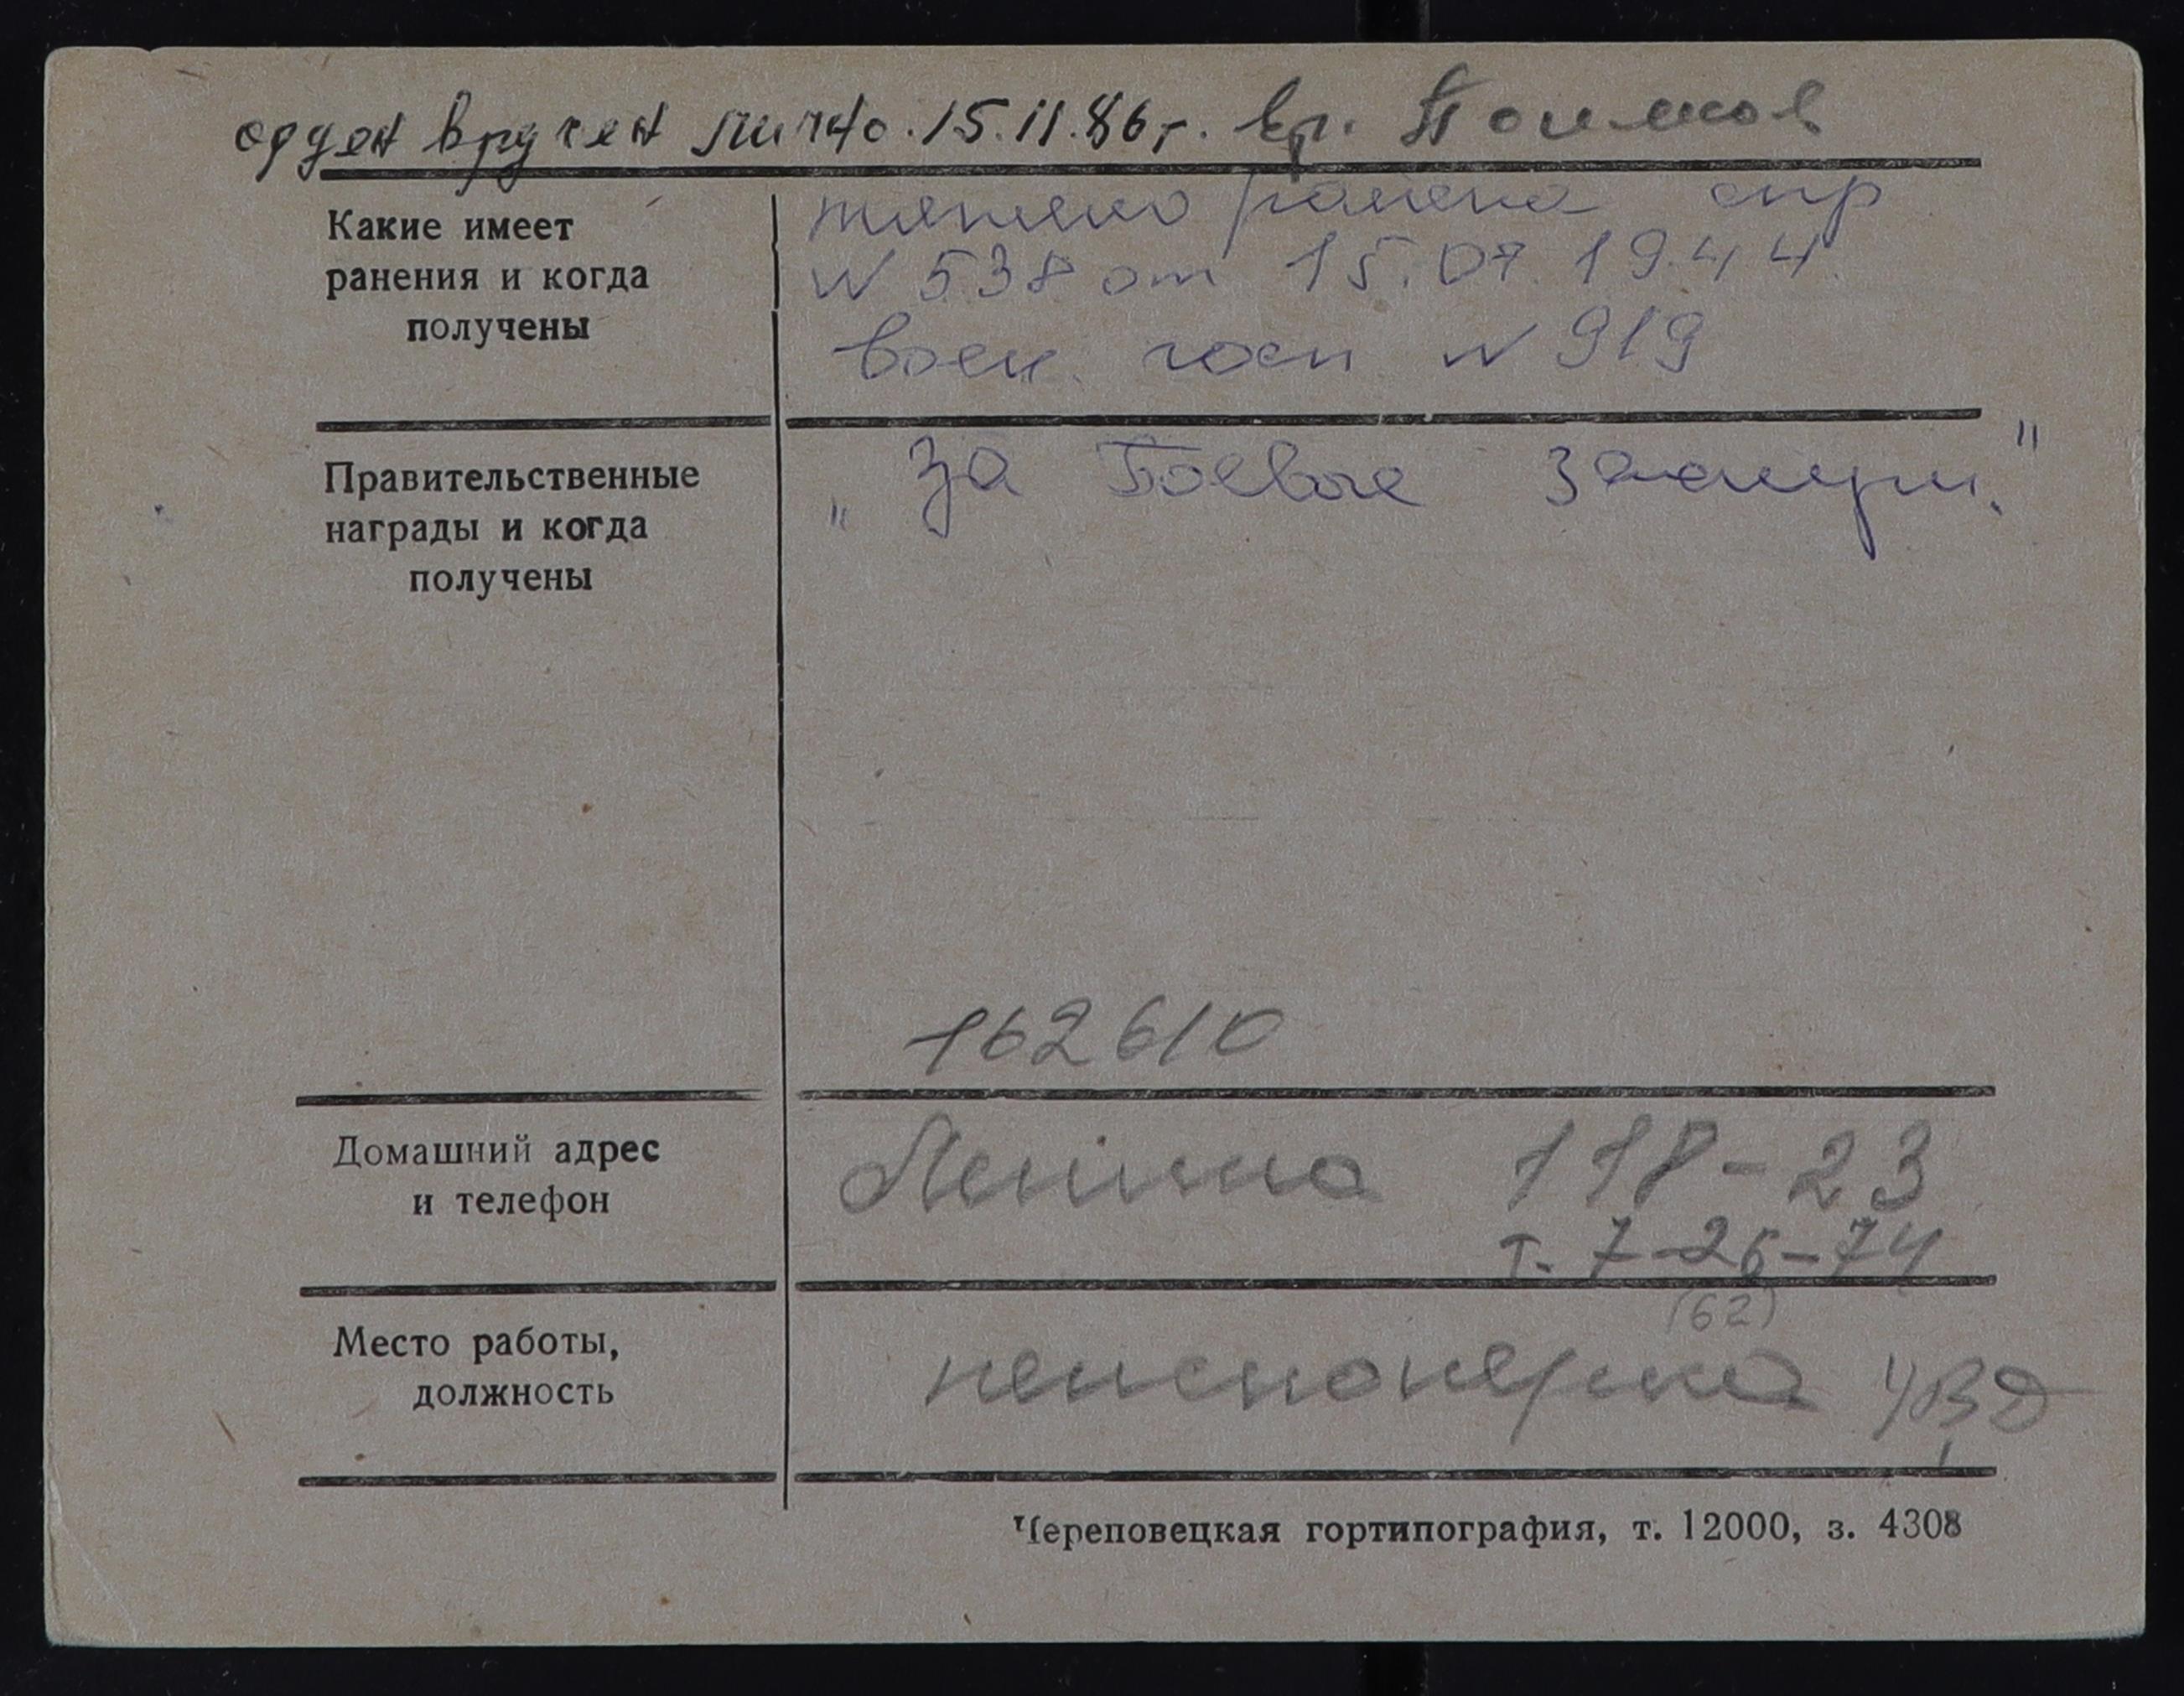 орден вручен лично. 15.11.86г. вр. Поимков
Какие имеет
ранения и когда
получены
тяжело ранена спр
N 538 от 15.07.1944
воен. госп N 919
Правительственные
награды и когда
получены
„За Боевые заслуги."
162610
Домашний адрес
и телефон
Ленина 118-23
т. 7-26-74
(62)
Место работы,
должность
пенсионерка УВД
Череповецкая гортипография, т. 12000, з. 4308